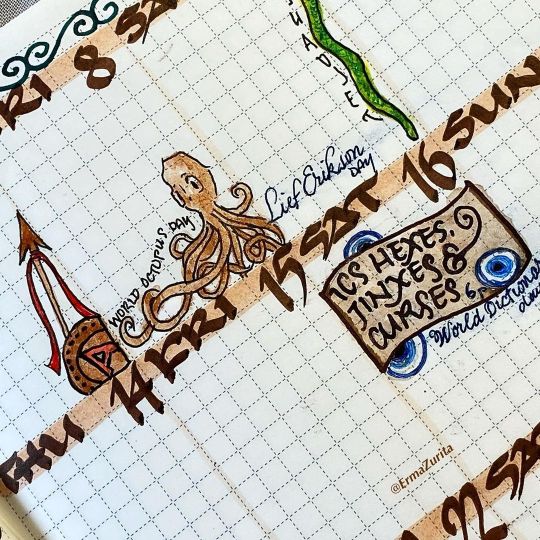 FRI 8 SAT
WORLD OCTOPUS DAY
Lief Erikson
DAY
THU 14 FRI 15 SAT 16 SUN
ICS HEXES,
JINXES &
CURSES 6
World Dictionar
@ErmaZurita
22 SAT